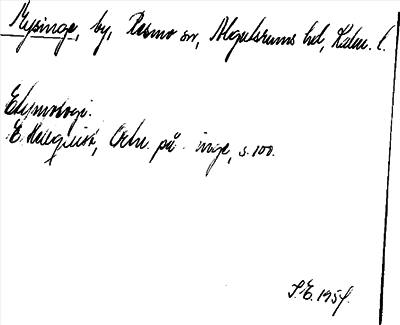 Mysinge, by, Resmo sn, Algutsrums hd, Kalm. l.
Etymologi.
E. Hellquist, Ortn. på -inge, s. 100.
S.E. 1954.